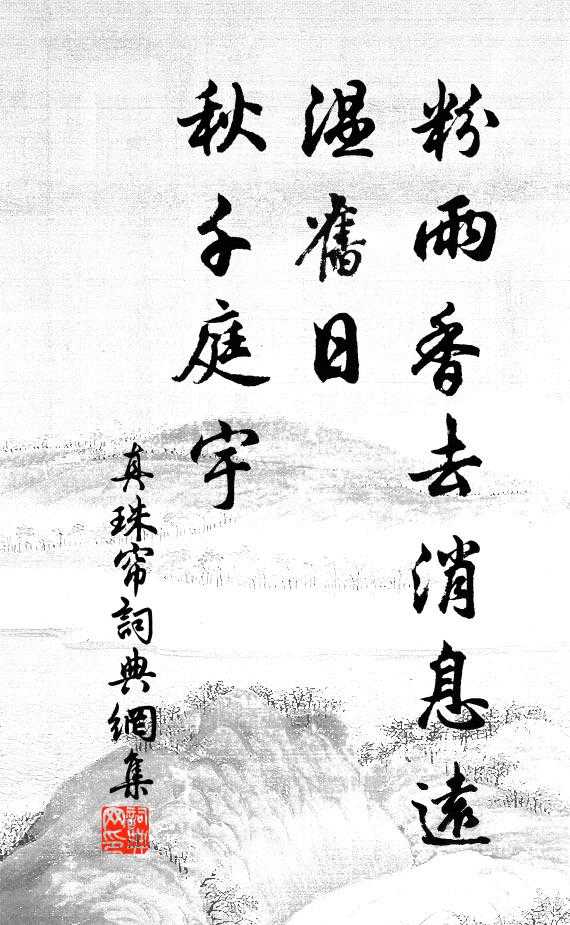 粉雨香去消息遠
温舊日
秋千庭宇
真珠帘詞典網集